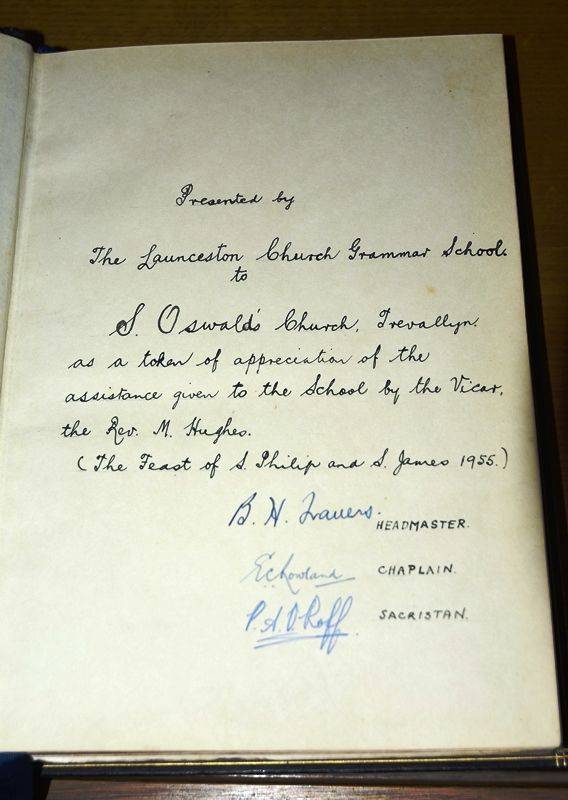 Presented by
The Launceston Church Grammar School.
to
S. Oswald's Church, Trevallyn.
as a token of appreciation of the
assistance given to the School by the Vicar,
the Rev. M. Hughes.
(The Feast of S. Philip and S. James 1955.)
B. H. Travers. HEADMASTER.
CHAPLAIN.
P.A.D. Roff SACRISTAN.